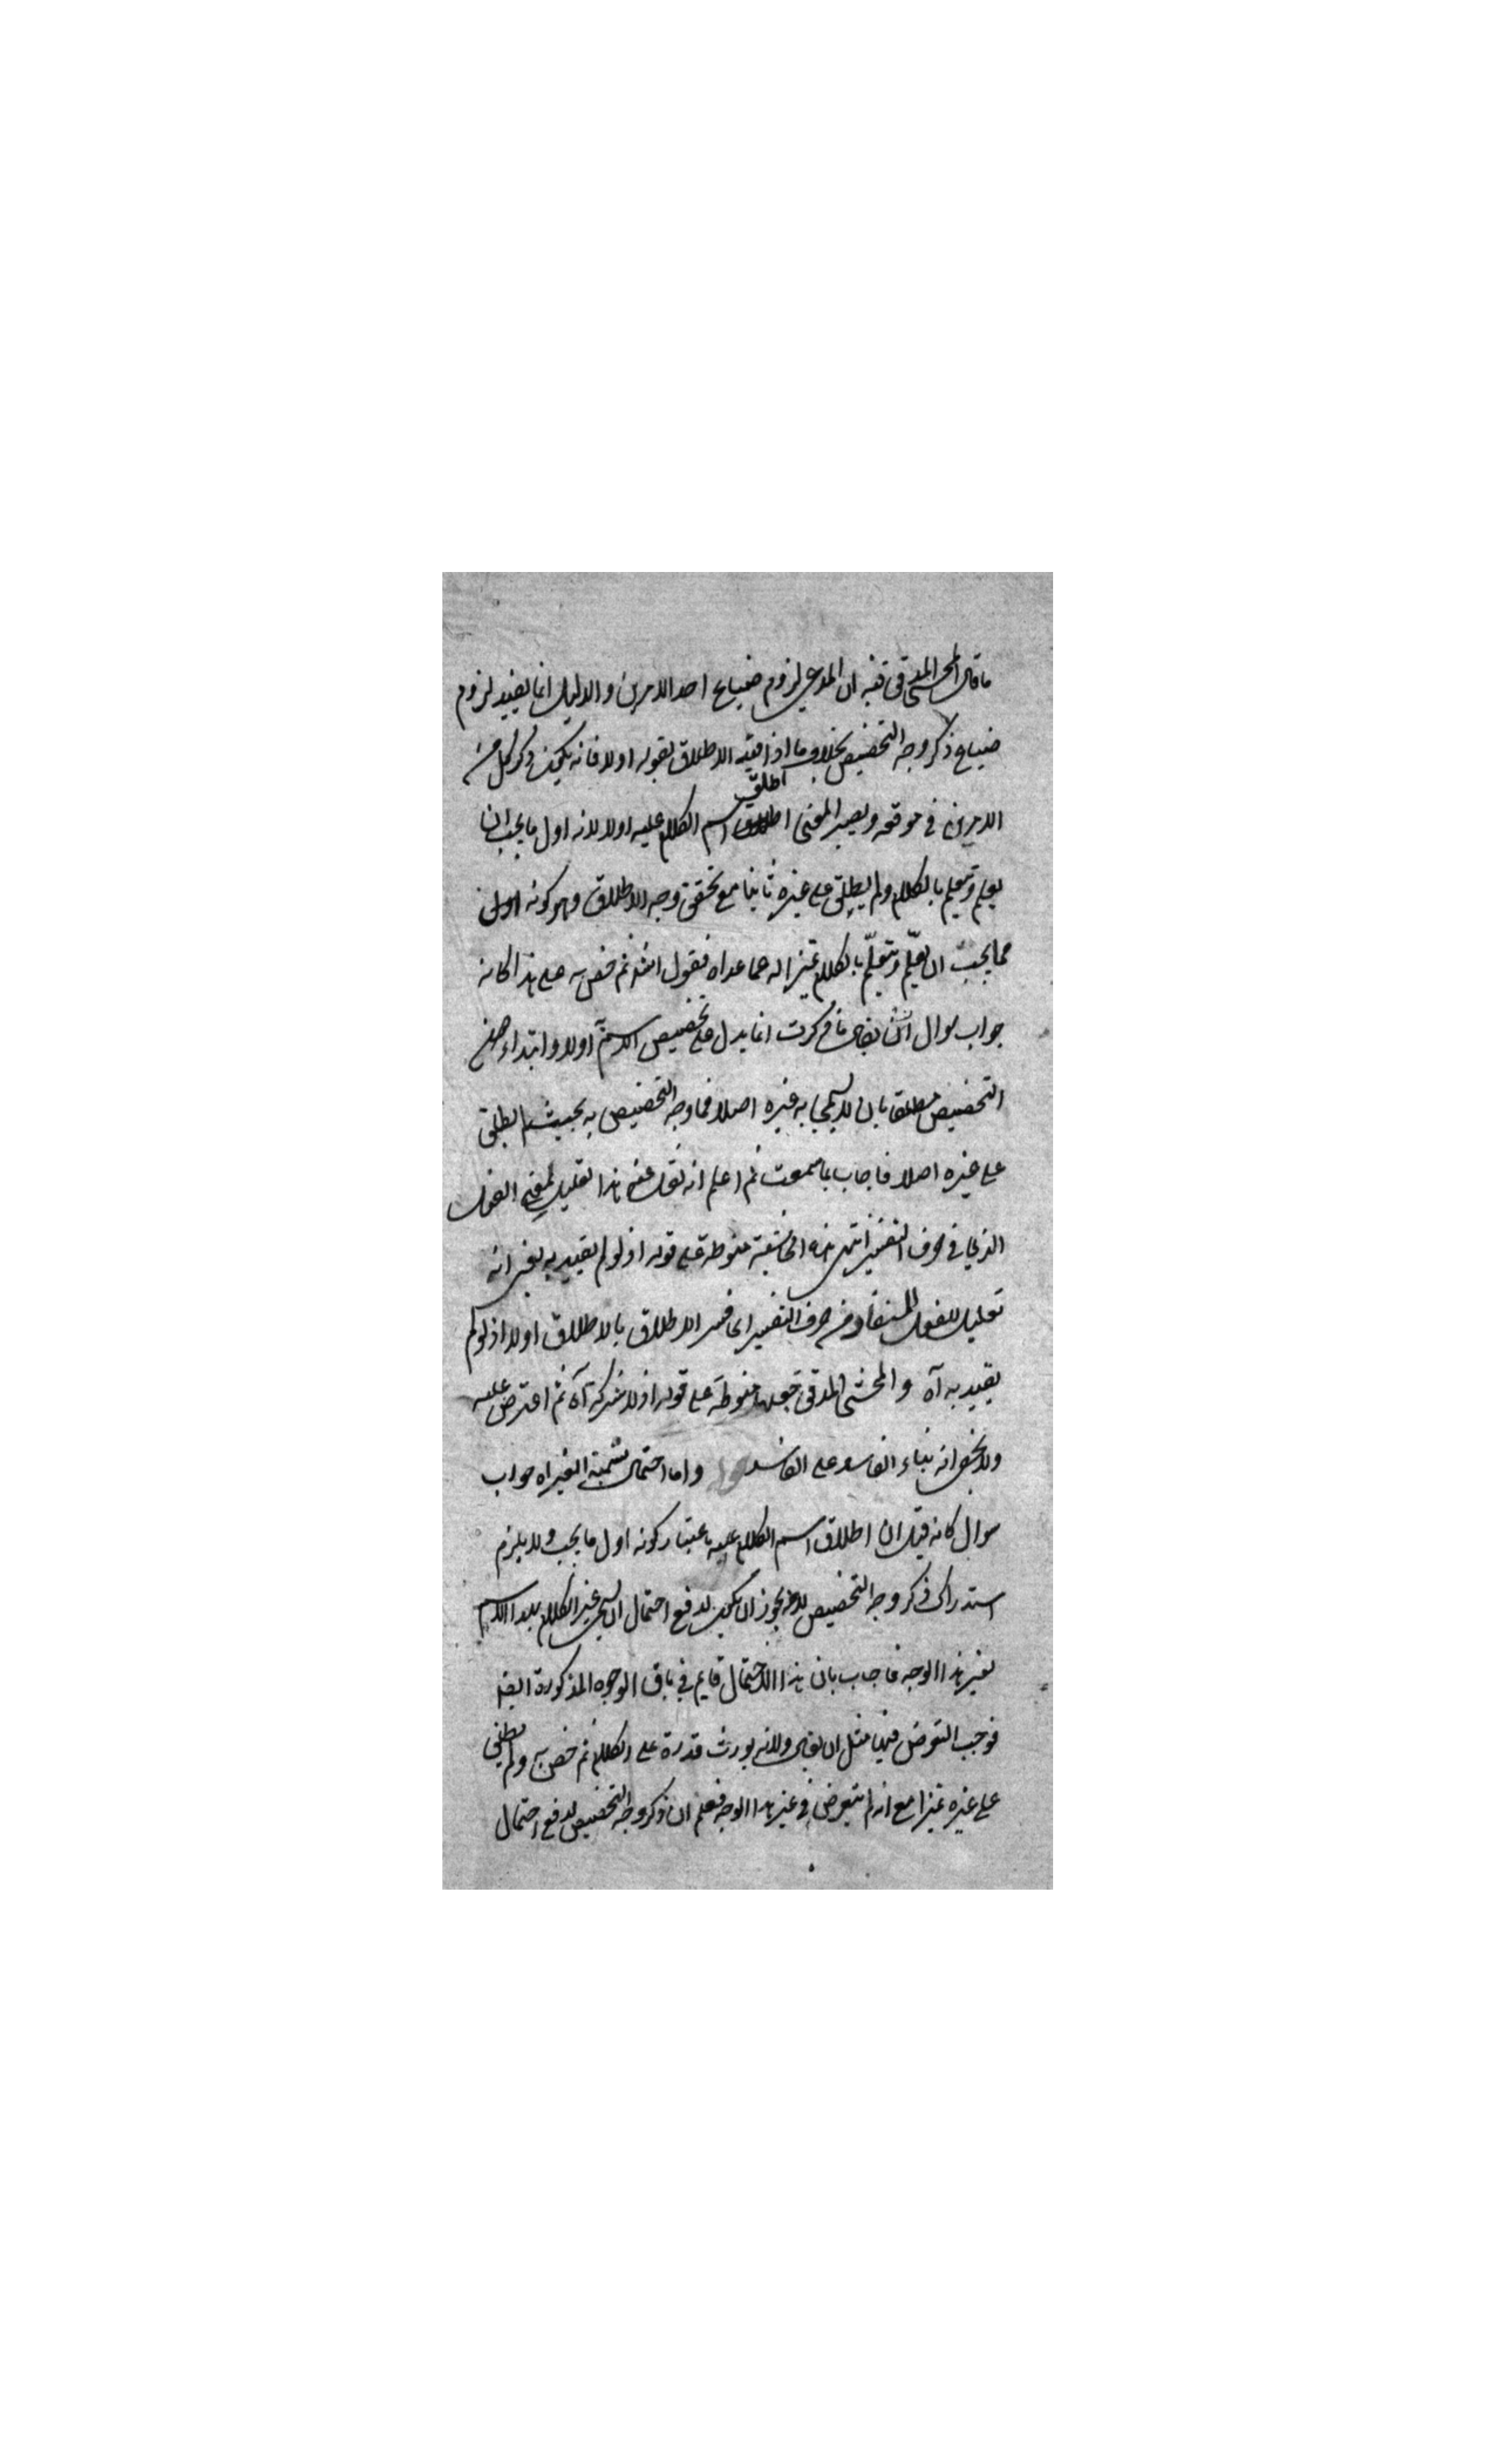 ما قال المحشى المدقق فيه ان المدعى لزوم ضياع احد الامرين والدليل انما يفيد لزوم
ضياع ذكر وجه التخصيص بخلاف ما اذا قيد الاطلاق بقوله اولا فانه يكون ذكر كل من
الامرين فى موقعه ويصير المعنى اطلق اسم الكلام عليه اولا لانه اول ما يجب ان
يعلم ويتعلم بالكلام ولم يطلق على غيره ثانيا مع تحقق وجه الاطلاق وهو كونه اول
مما يجب ان يعلّم ويتعلّم بالكلام تميزا له عما عداه فقول الش ثم خص به على هذا كانه
جواب سوال الش يقال ما ذكرت انما يدل على تخصيص الاسم به اولا وابتداء
التخصيص مطلقا بان لا يسمى به غيره اصلا فما وجه التخصيص به بحيث لم يطلق
على غيره اصلا فاجاب بما سمعت ثم اعلم انه نقل عنه هذا تعليل لمعنى الفعل
الذى فى حرف التفسير انتهى هذه الحاشية منوطة على قوله اذ لو لم يقيد به يعنى انه
تعليل للفعل المستفاد من حرف التفسير اى فسر الاطلاق بالاطلاق اولا اذ لو لم
يقيد به آه والمحشى المدقق جعلها منوطة على قوله اذ لا شركة آه ثم اعترض عليه
ولا يخفى انه بناء الفاسد على الفاسد واما احتمال تسمية الغير اه جواب
سوال كانه قيل ان اطلاق اسم الكلام عليه باعتبار كونه اول ما يجب ولا يلزم
استدراك ذكر وجه التخصيص لانه يجوز ان يكون لدفع احتمال ان يسمى غير الكلام بهذا الاسم
لغير هذا الوجه فاجاب بان هذا الاحتمال قايم فى باقى الوجوه المذكورة ايضا
فوجب التعرض فيها مثل ان يقال ولانه يورث قدرة على الكلام ثم خص به ولم يطلق
على غيره تميزا مع انه لم يتعرض فى غير هذا الوجه فعلم ان ذكر وجه التخصيص لدفع احتمال